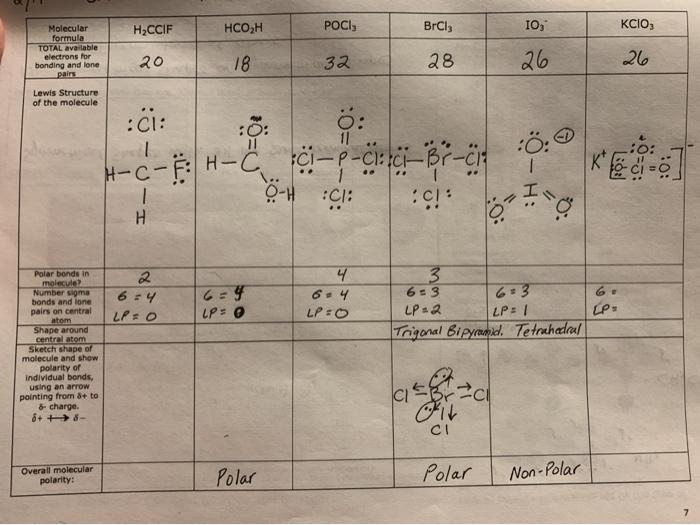 Molecular formula
H₂CClF
HCO₂H
POCl₃
BrCl₃
IO₃⁻
KClO₃
TOTAL available electrons for bonding and lone pairs
20
18
32
28
26
26
Lewis Structure of the molecule
:Cl:
H-C-F:
H
:O:
H-C
O-H
O:
:Cl-P-Cl:
:Cl:
:Cl-Br-Cl:
:Cl:
:O: ⊖
I
O O
K⁺ [:O: :O-Cl=O]⁻
Polar bonds in molecule?
2
4
3
Number sigma bonds and lone pairs on central atom
6 = 4
LP = 0
6 = 4
LP = 0
6 = 4
LP = 0
6 = 3
LP = 2
6 = 3
LP = 1
6 =
LP =
Shape around central atom
Trigonal Bipyramid.
Tetrahedral
Sketch shape of molecule and show polarity of individual bonds, using an arrow pointing from δ+ to δ- charge.
δ+ ⟼ δ-
Cl Br Cl
Cl
Overall molecular polarity:
Polar
Polar
Non-Polar
7